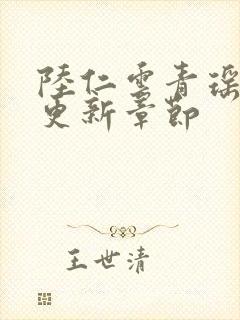 陸仁雲青瑶
更新章節
王世清